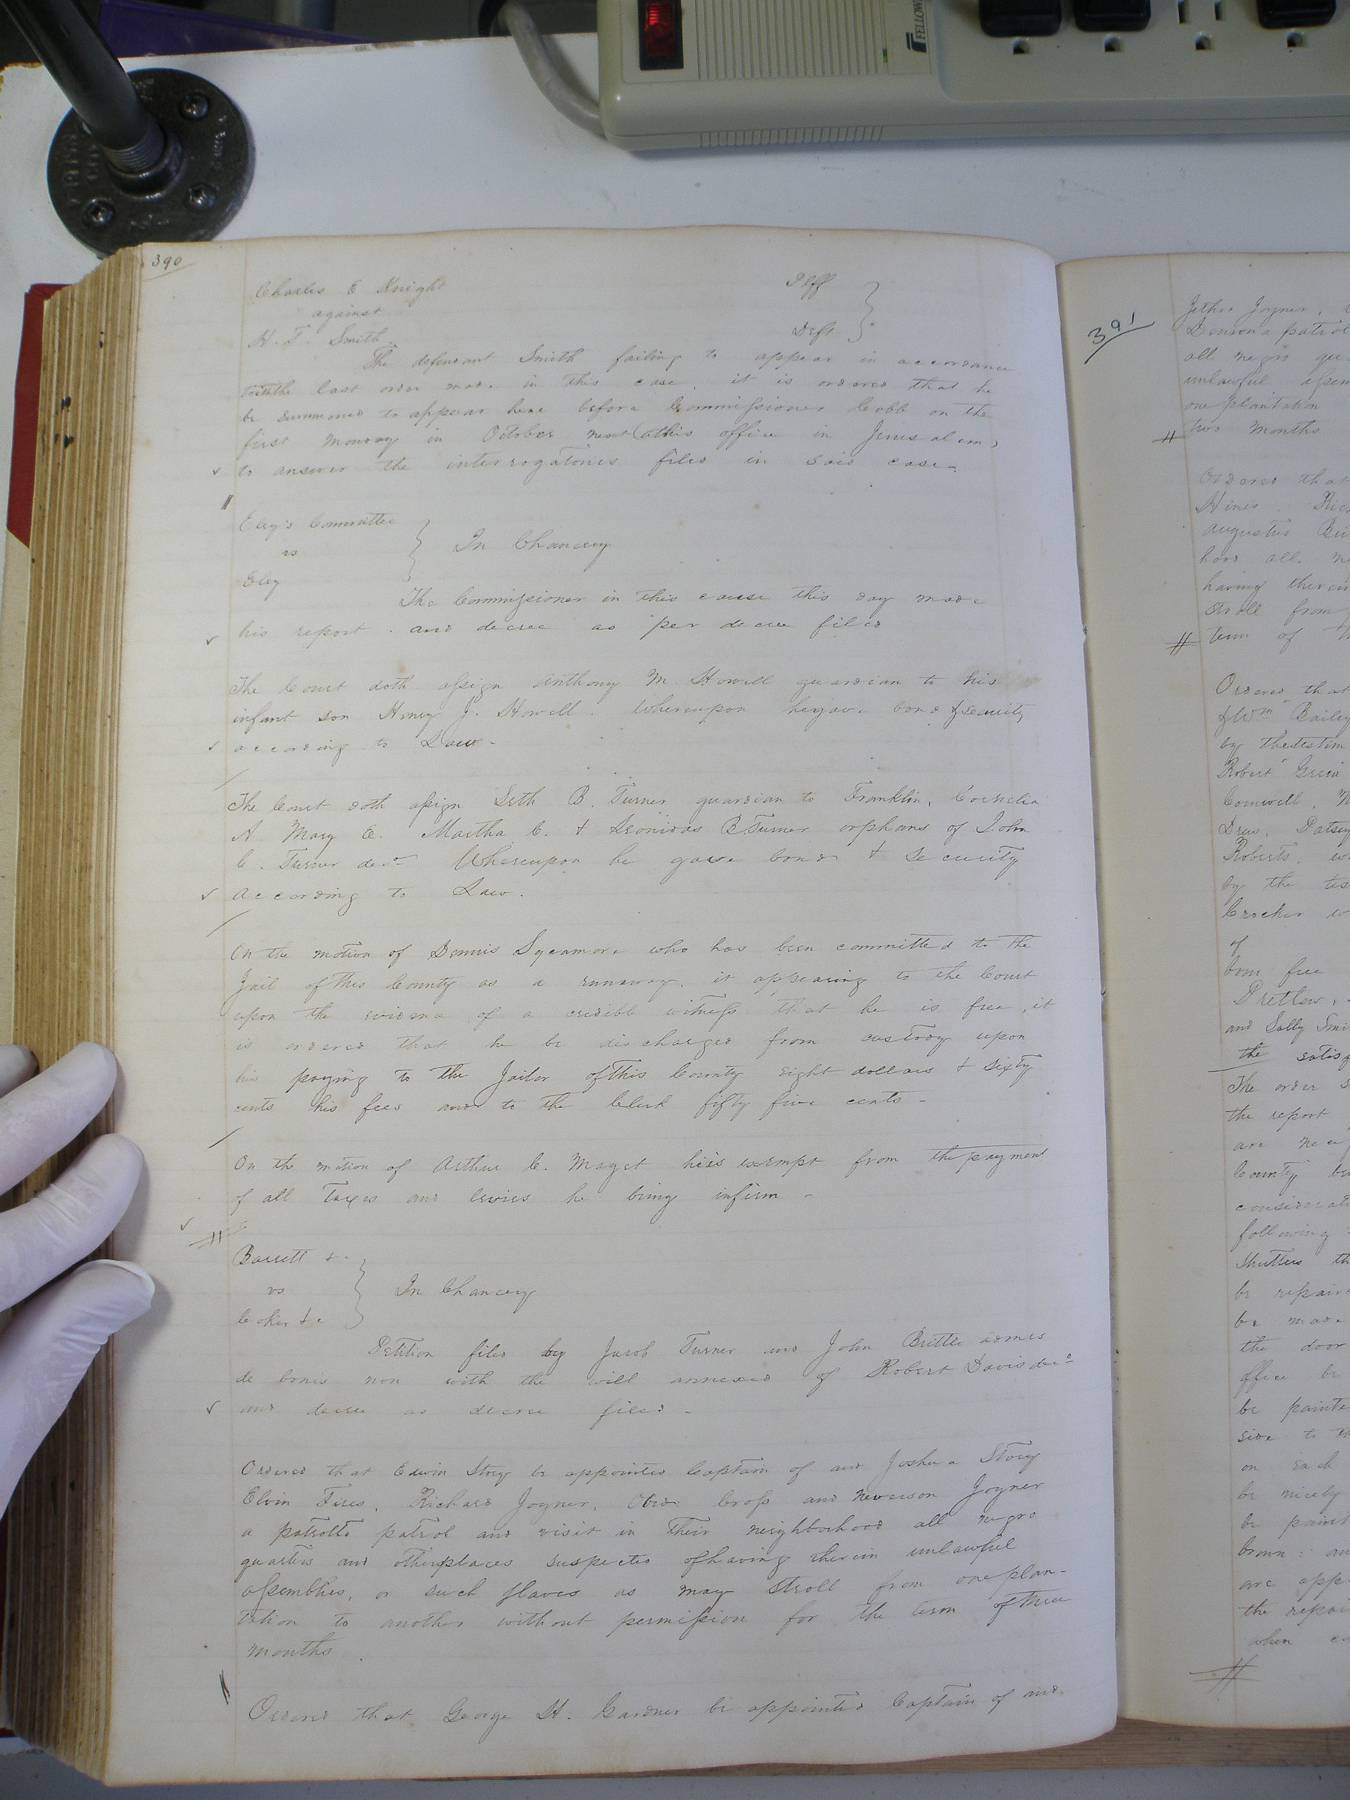 FELLOWES
390
Charles E Knight Plff
against
H. T. Smith Deft.
The defendant Smith failing to appear in accordance
last order made in this case, it is ordered that he
be summoned to appear here before Commissioner Cobb on the
first Monday in October next (at his office in Jerusalem)
to answer the interrogatories filed in said case.
Eley's Committee
vs In Chancery
Eley
The Commissioner in this cause this day made
his report. and decree as per decree filed
The Court doth assign Anthony M. Howell guardian to his
infant son Henry J. Howell. Whereupon he gave bond & security
according to Law.
The Court doth assign Seth B. Turner guardian to Franklin, Cornelia
A Mary E. Martha C. & Leonidas B Turner orphans of John
C. Turner decd Whereupon he gave bond & security
according to Law.
On the motion of Dennis Sycamore who has been committed to the
Jail of this County as a runaway, it appearing to the Court
upon the evidence of a credible witness that he is free, it
is ordered that he be discharged from custody upon
his paying to the Jailor of this County eight dollars & sixty
cents his fees and to the Clerk fifty five cents -
On the motion of Arthur C. Maget he is exempt from the payment
of all taxes and levies he being infirm -
Barrett &
vs In Chancery
Coker &c
Petition filed by Jacob Turner and John Brittle admrs
de bonis non with the will annexed of Robert Davis decd
and decree as decree filed. -
Ordered that Edwin Story be appointed Captain of and Joshua Story
Elvin Fires, Richard Joyner, Obed Cross and Neverson Joyner
a patrolls patrol and visit in their neighborhood all negro
quarters and other places suspected of having therein unlawful
assemblies, or such slaves as may stroll from one plan-
tation to another without permission for the term of three
months.
Ordered that George H. Gardner be appointed Captain of and
391
Jethro Joyner,
Denson a patrol
all negro qu
unlawful assem
one plantation
two months
Ordered that
Hines Ric
Augustus
hood all ne
having therein
stroll from
term of
Ordered that
& Wm Bailey
by the testim
Robert Green
Cornwell,
Drew, Patsey
Roberts,
by the tes
Crocker w
of
born free
Pretlow,
and Sally Smi
the satisf
The order
the report
are nece
County
consideration
following
Shutters th
be repaire
be made
the door
office be
be painte
side to th
on each
be nicely
be paint
brown: an
are app
the repai
when